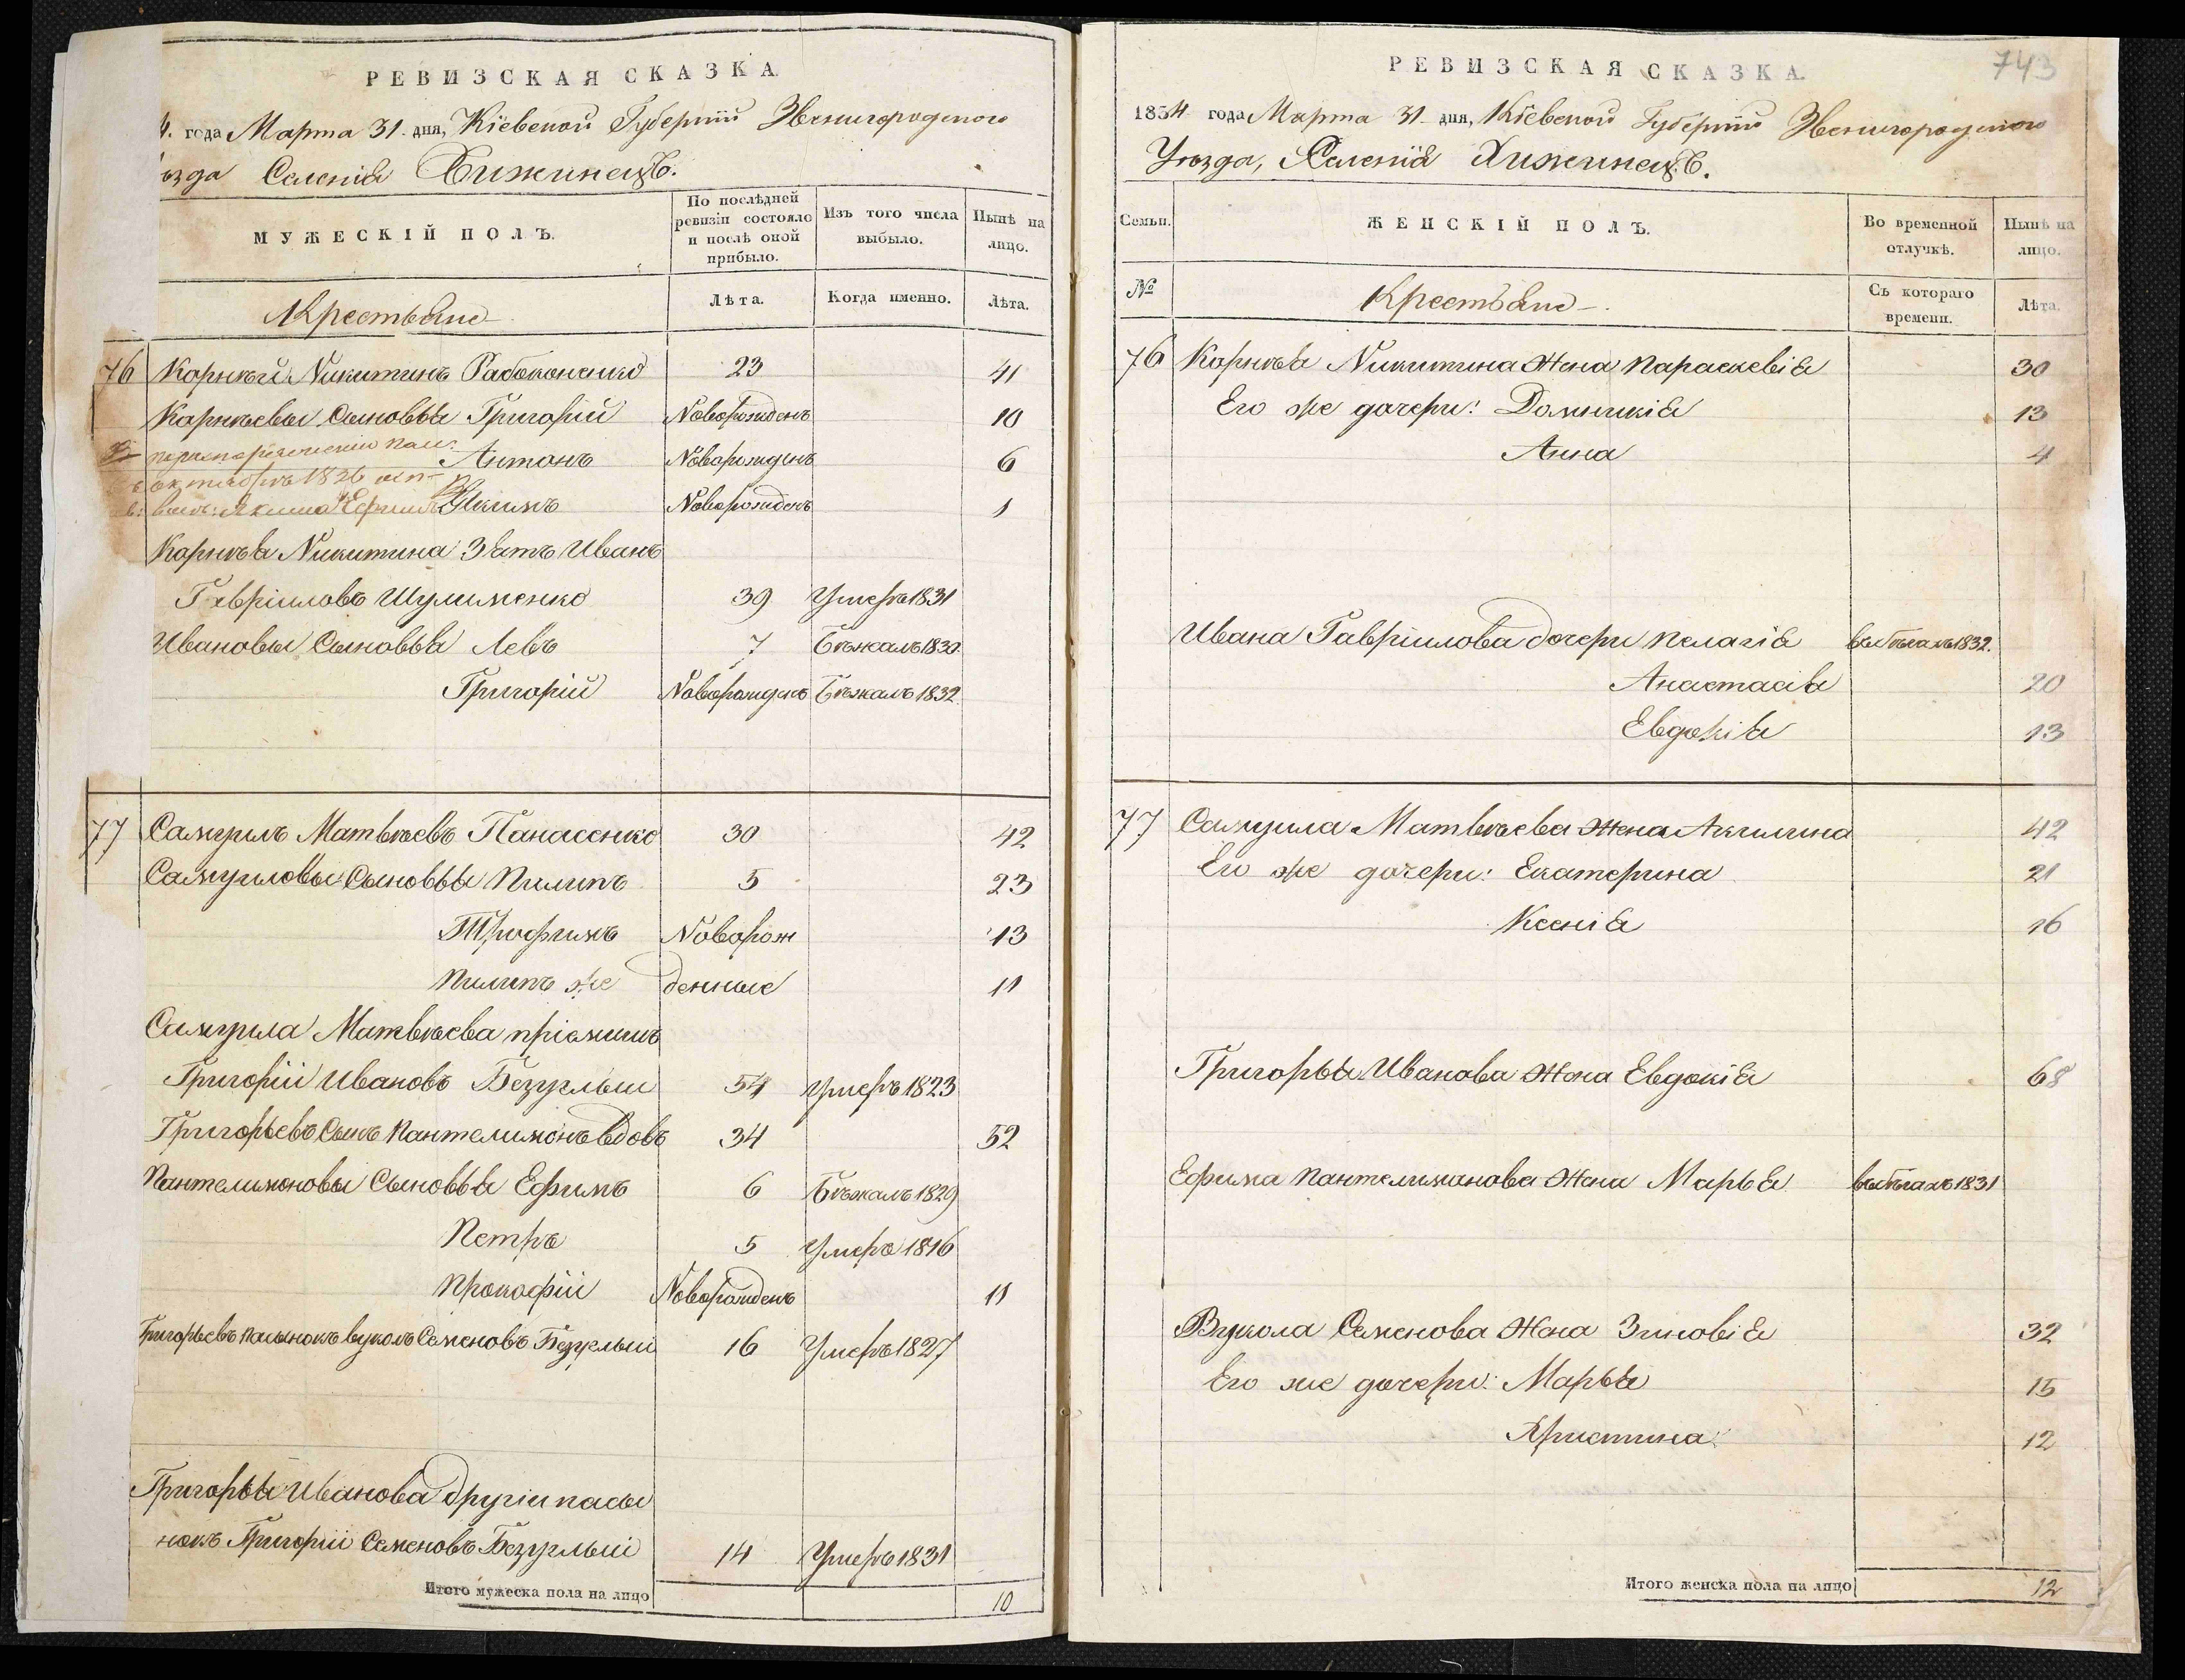 РЕВИЗСКАЯ СКАЗКА.
4. года Марта 31 дня, Кіевской Губерніи Звенигородского
ѣзда Селенія Хижинецъ.
МУЖЕСКІЙ ПОЛЪ.
По послѣдней ревизіи состояло и послѣ оной прибыло.
Изъ того числа выбыло.
Нынѣ на лицо.
Крестьяне
Лѣта.
Когда именно.
Лѣта.
76 Корнѣй Никитинъ Рабоконенко 23 41
Корнѣевы Сыновья Григорій Новорожденъ 10
Антонъ Новорожденъ 6
октября 1826
Якимъ Новорожденъ 1
Корнѣя Никитина Зять Иванъ
Гавріиловъ Шулименко 39 Умеръ 1831
Ивановы Сыновья Левъ 7 Бѣжалъ 1830.
Григорій Новорожденъ Бѣжалъ 1832.
77 Самуилъ Матвѣевъ Панасенко 30 42
Самуиловы Сыновья Пилипъ 5 23
Трофимъ Новорож 13
Пилипъ же денные 11
Самуила Матвѣева пріемышъ
Григорій Ивановъ Безуглый 54 Умеръ 1823
Григорьевъ Сынъ Пантелимонъ вдовъ 34 52
Пантелимоновы Сыновья Ефимъ 6 Бѣжалъ 1829
Петръ 5 Умеръ 1816
Прокофій Новорожденъ 11
Григорьевъ пасынокъ Вуколъ Семеновъ Безуглый 16 Умеръ 1827
Григорья Иванова другій пасы
нокъ Григорій Семеновъ Безуглый 14 Умеръ 1831
Итого мужеска пола на лицо 10
743
РЕВИЗСКАЯ СКАЗКА.
1834 года Марта 31 дня, Кіевской Губерніи Звенигородского
Уѣзда, Селенія Хижинецъ.
Семьи.
ЖЕНСКІЙ ПОЛЪ.
Во временной отлучкѣ.
Нынѣ на лицо.
№
Крестьяне
Съ котораго времени.
Лѣта.
76 Корнѣя Никитина Жена Параскевія 30
Его же дочери: Домникія 13
Анна 4
Ивана Гавріилова дочери Пелагія 1832.
Анастасія 20
Евдокія 13
77 Самуила Матвѣева Жена Акилина 42
Его же дочери: Екатерина 21
Ксенія 16
Григорья Иванова Жена Евдокія 68
Ефима Пантелимонова Жена Марья 1831
Вукола Семенова Жена Зиновія 32
Его же дочери: Марья 15
Христина 12
Итого женска пола на лицо 12